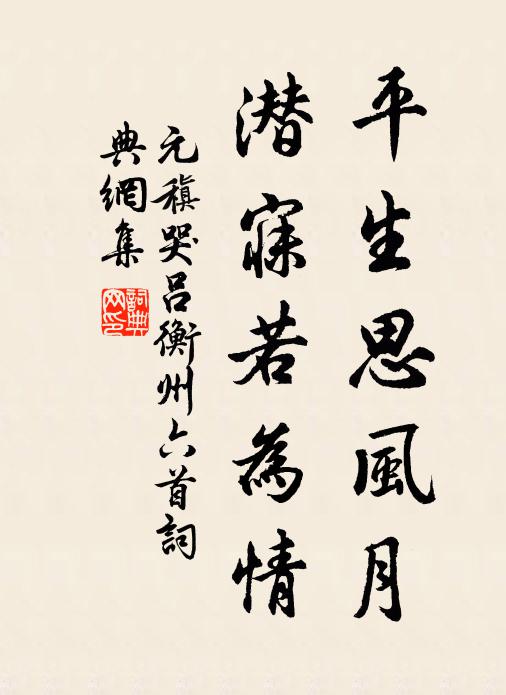 平生思風月
潜寐若為情
元稹哭呂衡州六首詞
典網集
詞典網印